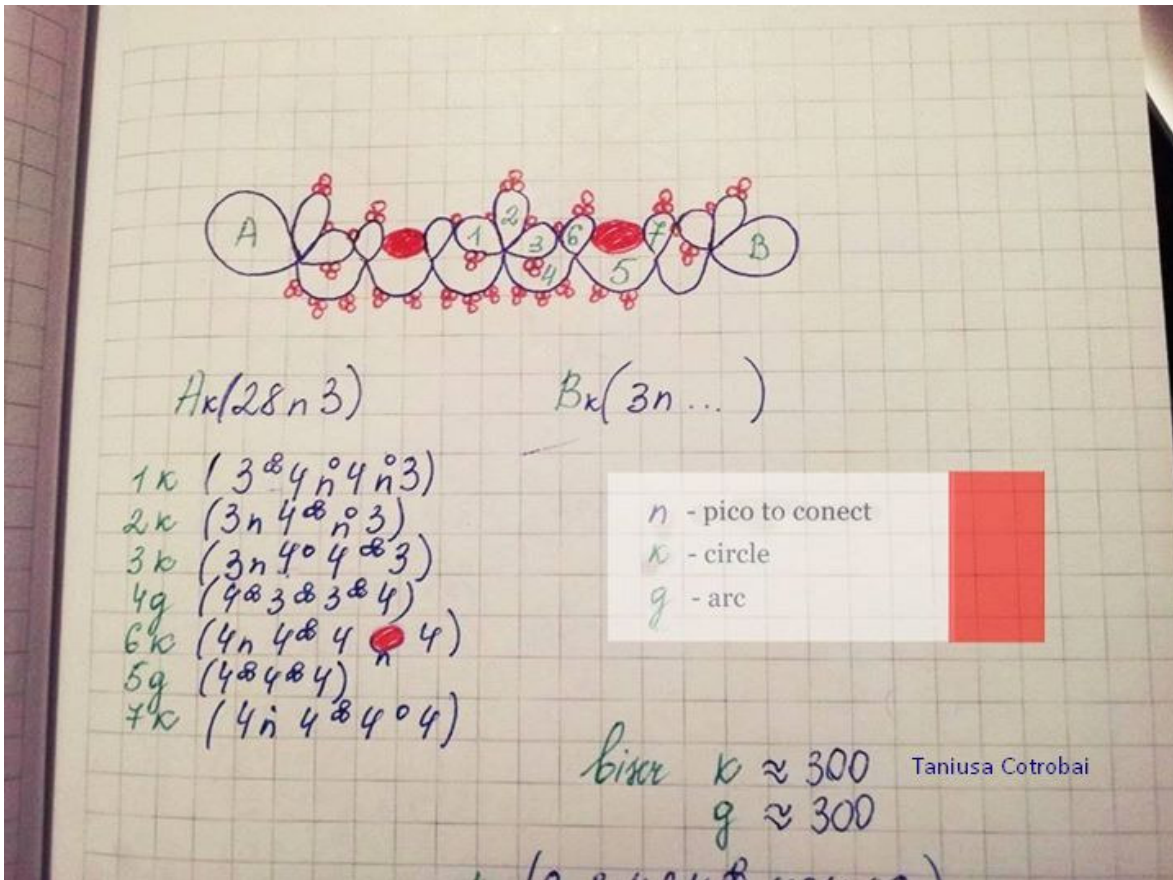 A 1 2 3 4 6 5 7 B
Aк(28n3) Bк(3n...)
1к (3 4n 4n 3)
2к (3n 4 n 3)
3к (3n 4 4 3)
4g (4 3 3 4)
6к (4n 4 4 n 4)
5g (4 4 4)
7к (4n 4 4 4)
n - pico to conect
к - circle
g - arc
biser к ≈ 300
g ≈ 300
Taniusa Cotrobai